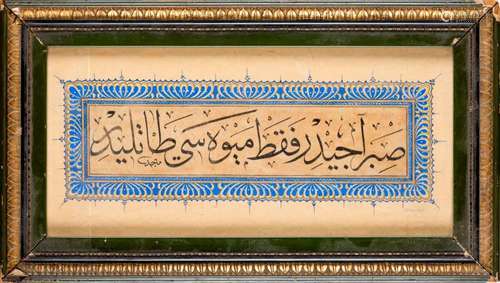 صبر آجیدر فقط میوه سی طاتلیدر